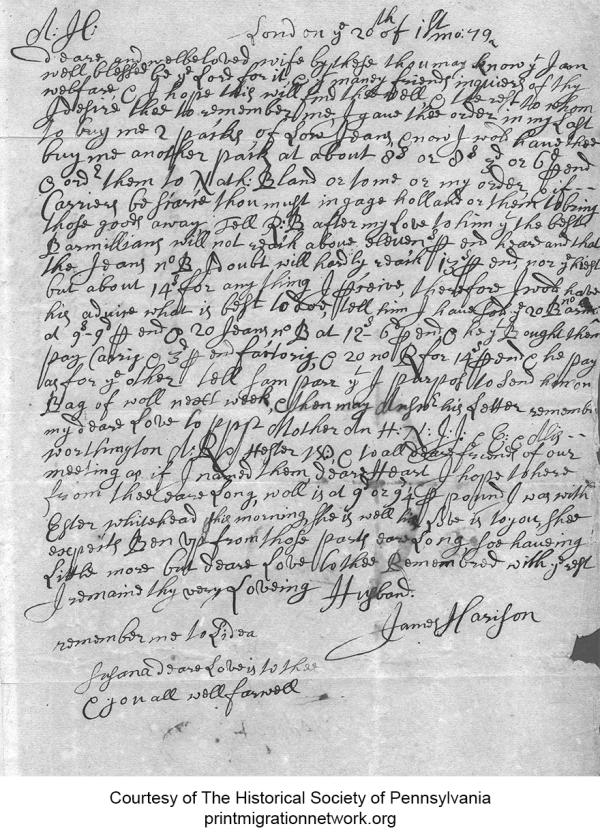 A: H:
London ye 20th of 1st mo: 79
deare and welbeloved wife by these thou may know yt I am
well blessed be ye Lord for it & many friends inquiers of thy
welfare & I hope this will find thee well & the rest to whom
I desire thee to remember me I gave thee order in my Last
to buy me 2 packs of Low Jeans & now I wod have thee
buy me another pack at about 8s or 8s 3d or 6d end
& ordr them to Nath: Bland or to me or my order & if
Carriers be scarce thou must ingage holland or them to bring
those goods away Tell R: B after my Love to him yt the best
Barmillians will not reach above eleven end heare and that
the Jeans no B I doubt will hardly reach 13s end nor ye highest
but about 14s for any thing I perceive therefore I wod have
his advice what is best to doe, tell him I have
at 9s 9d end & 20 Jeans no B at 12s 6d end & he Bought them
pay Carrig & 3d end & 20 no R for 14s end & he pay
as for ye other tell Sam parr yt I purpos to send him on
Bag of woll next week, & then may his Letter remember
my deare Love to Mother An H: N: J: J: & B: &
worthington A: R Hester W: & to all deare friends of our
meeting as if I named them deare Heart I hope to here
from thee eare Long, woll is at 9 or 9¼ pound I was with
Ester whitehead this morning, she is well his Love is to you, shee
expects Ben up from those parts eare Long, soe haveing
Little more but deare Love to thee Remembred with ye rest
I remaine thy very Loveing Husband.
James Harison
remember me to Lidea
Susana deare Love is to thee
& you all well farwell
Courtesy of The Historical Society of Pennsylvania
printmigrationnetwork.org